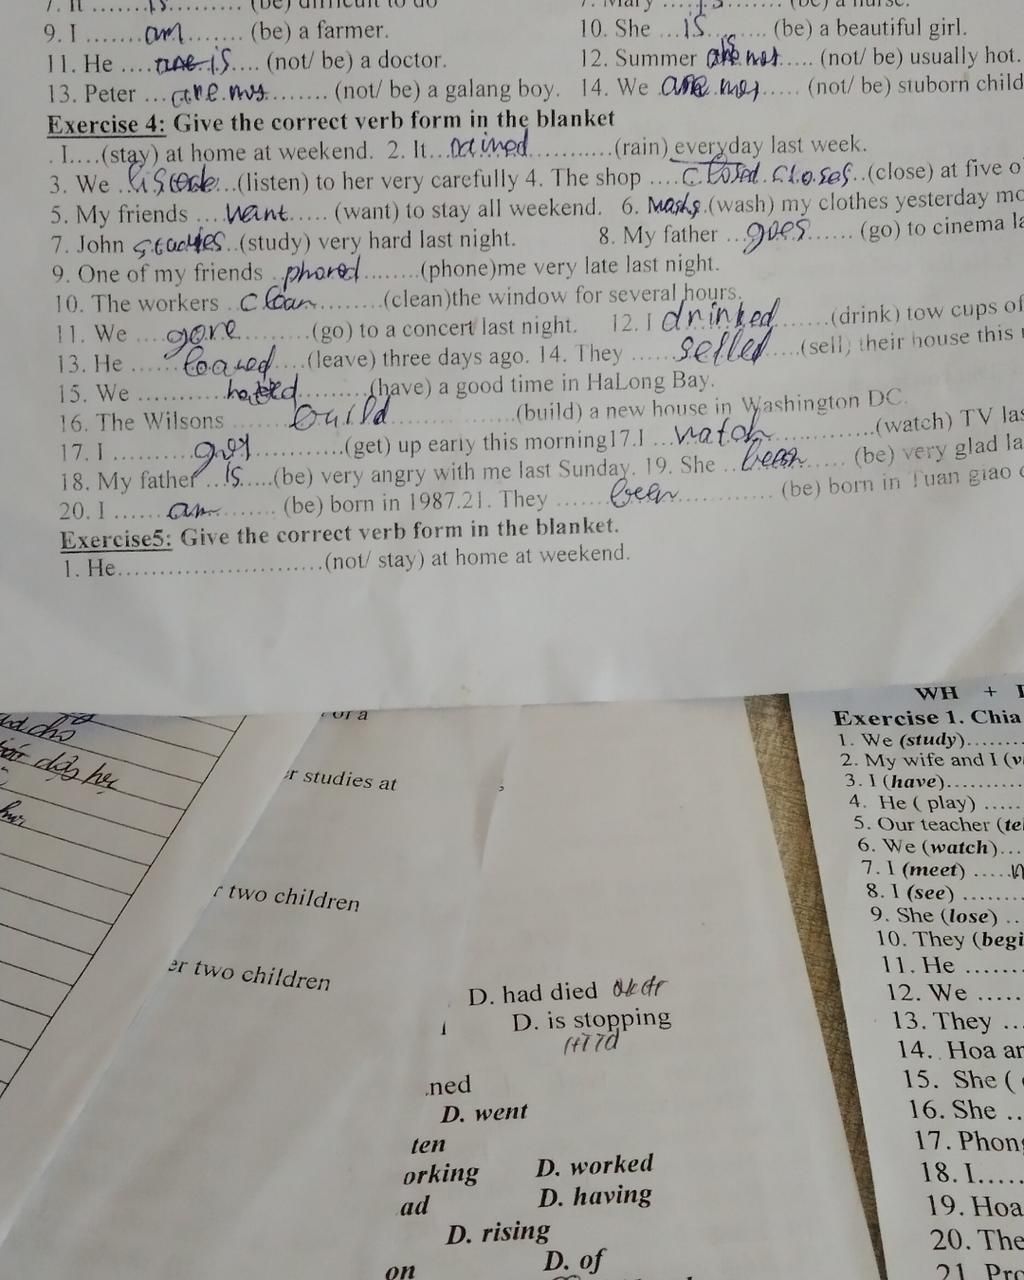 9. I .......am....... (be) a farmer.
10. She ...is....... (be) a beautiful girl.
11. He ....are is.... (not/ be) a doctor.
12. Summer is ..... (not/ be) usually hot.
13. Peter ...are ......... (not/ be) a galang boy. 14. We are ..... (not/ be) stuborn child
Exercise 4: Give the correct verb form in the blanket
. I....(stay) at home at weekend. 2. It...rained............(rain) everyday last week.
3. We .........(listen) to her very carefully 4. The shop ....closed.closes..(close) at five o
5. My friends ....want..... (want) to stay all weekend. 6. .(wash) my clothes yesterday mo
7. John studies..(study) very hard last night.
8. My father ...goes...... (go) to cinema la
9. One of my friends ..phoned........(phone)me very late last night.
10. The workers ..clean.........(clean)the window for several hours.
11. We ....gone..........(go) to a concert last night. 12. I drinked.......(drink) tow cups of
13. He ......leaved....(leave) three days ago. 14. They ......selled....(sell) their house this
15. We ......................(have) a good time in HaLong Bay.
16. The Wilsons ......build..............(build) a new house in Washington DC.
17. I ..........got............(get) up early this morning17.I ...watch..............(watch) TV las
18. My father ...is.....(be) very angry with me last Sunday. 19. She ..been..... (be) very glad la
20. I ......am....... (be) born in 1987.21. They .......been............... (be) born in Tuan giao
Exercise5: Give the correct verb form in the blanket.
1. He.........................(not/ stay) at home at weekend.
WH +
Exercise 1. Chia
1. We (study)........
2. My wife and I (v
3. I (have)...........
4. He ( play) .....
5. Our teacher (te
6. We (watch)...
7. I (meet) .....
8. I (see) ........
9. She (lose) ..
10. They (begi
11. He .......
12. We .....
13. They ...
14. Hoa an
15. She (
16. She ..
17. Phong
18. I.....
19. Hoa
20. The
21. Pro
of a
r studies at
r two children
er two children
D. had died
D. is stopping
ned
D. went
ten
orking D. worked
ad D. having
D. rising
on D. of